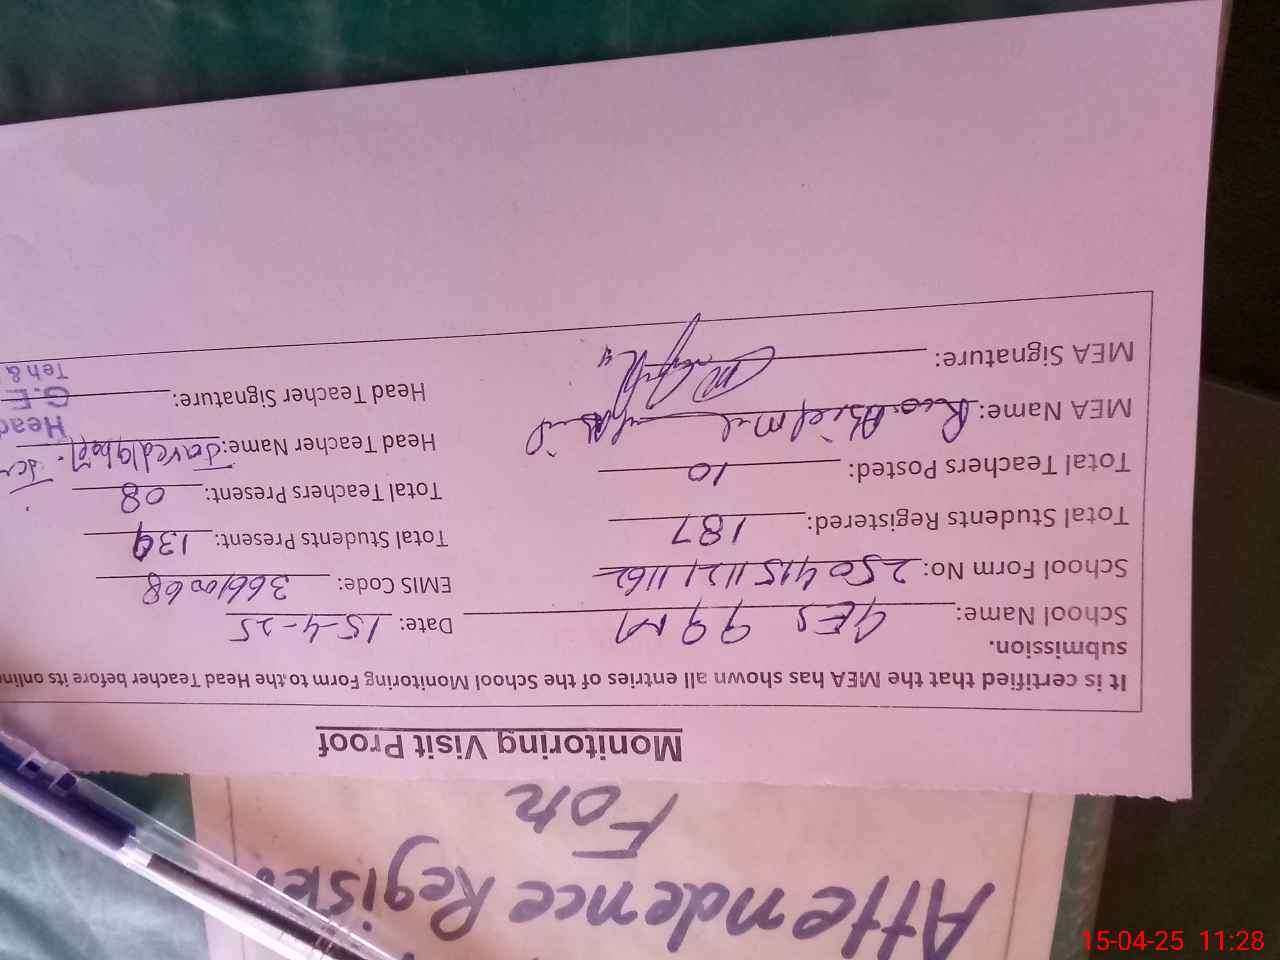 Monitoring Visit Proof
It is certified that the MEA has shown all entries of the School Monitoring Form to the Head Teacher before its online
submission.
School Name: GES 99 M Date: 15-4-25
School Form No: EMIS Code:
Total Students Registered: 187 Total Students Present: 139
Total Teachers Posted: 10 Total Teachers Present: 08
MEA Name: Head Teacher Name: Javed Iqbal Head
MEA Signature: Head Teacher Signature: G.E
Teh &
Attendence Register
For
15-04-25 11:28